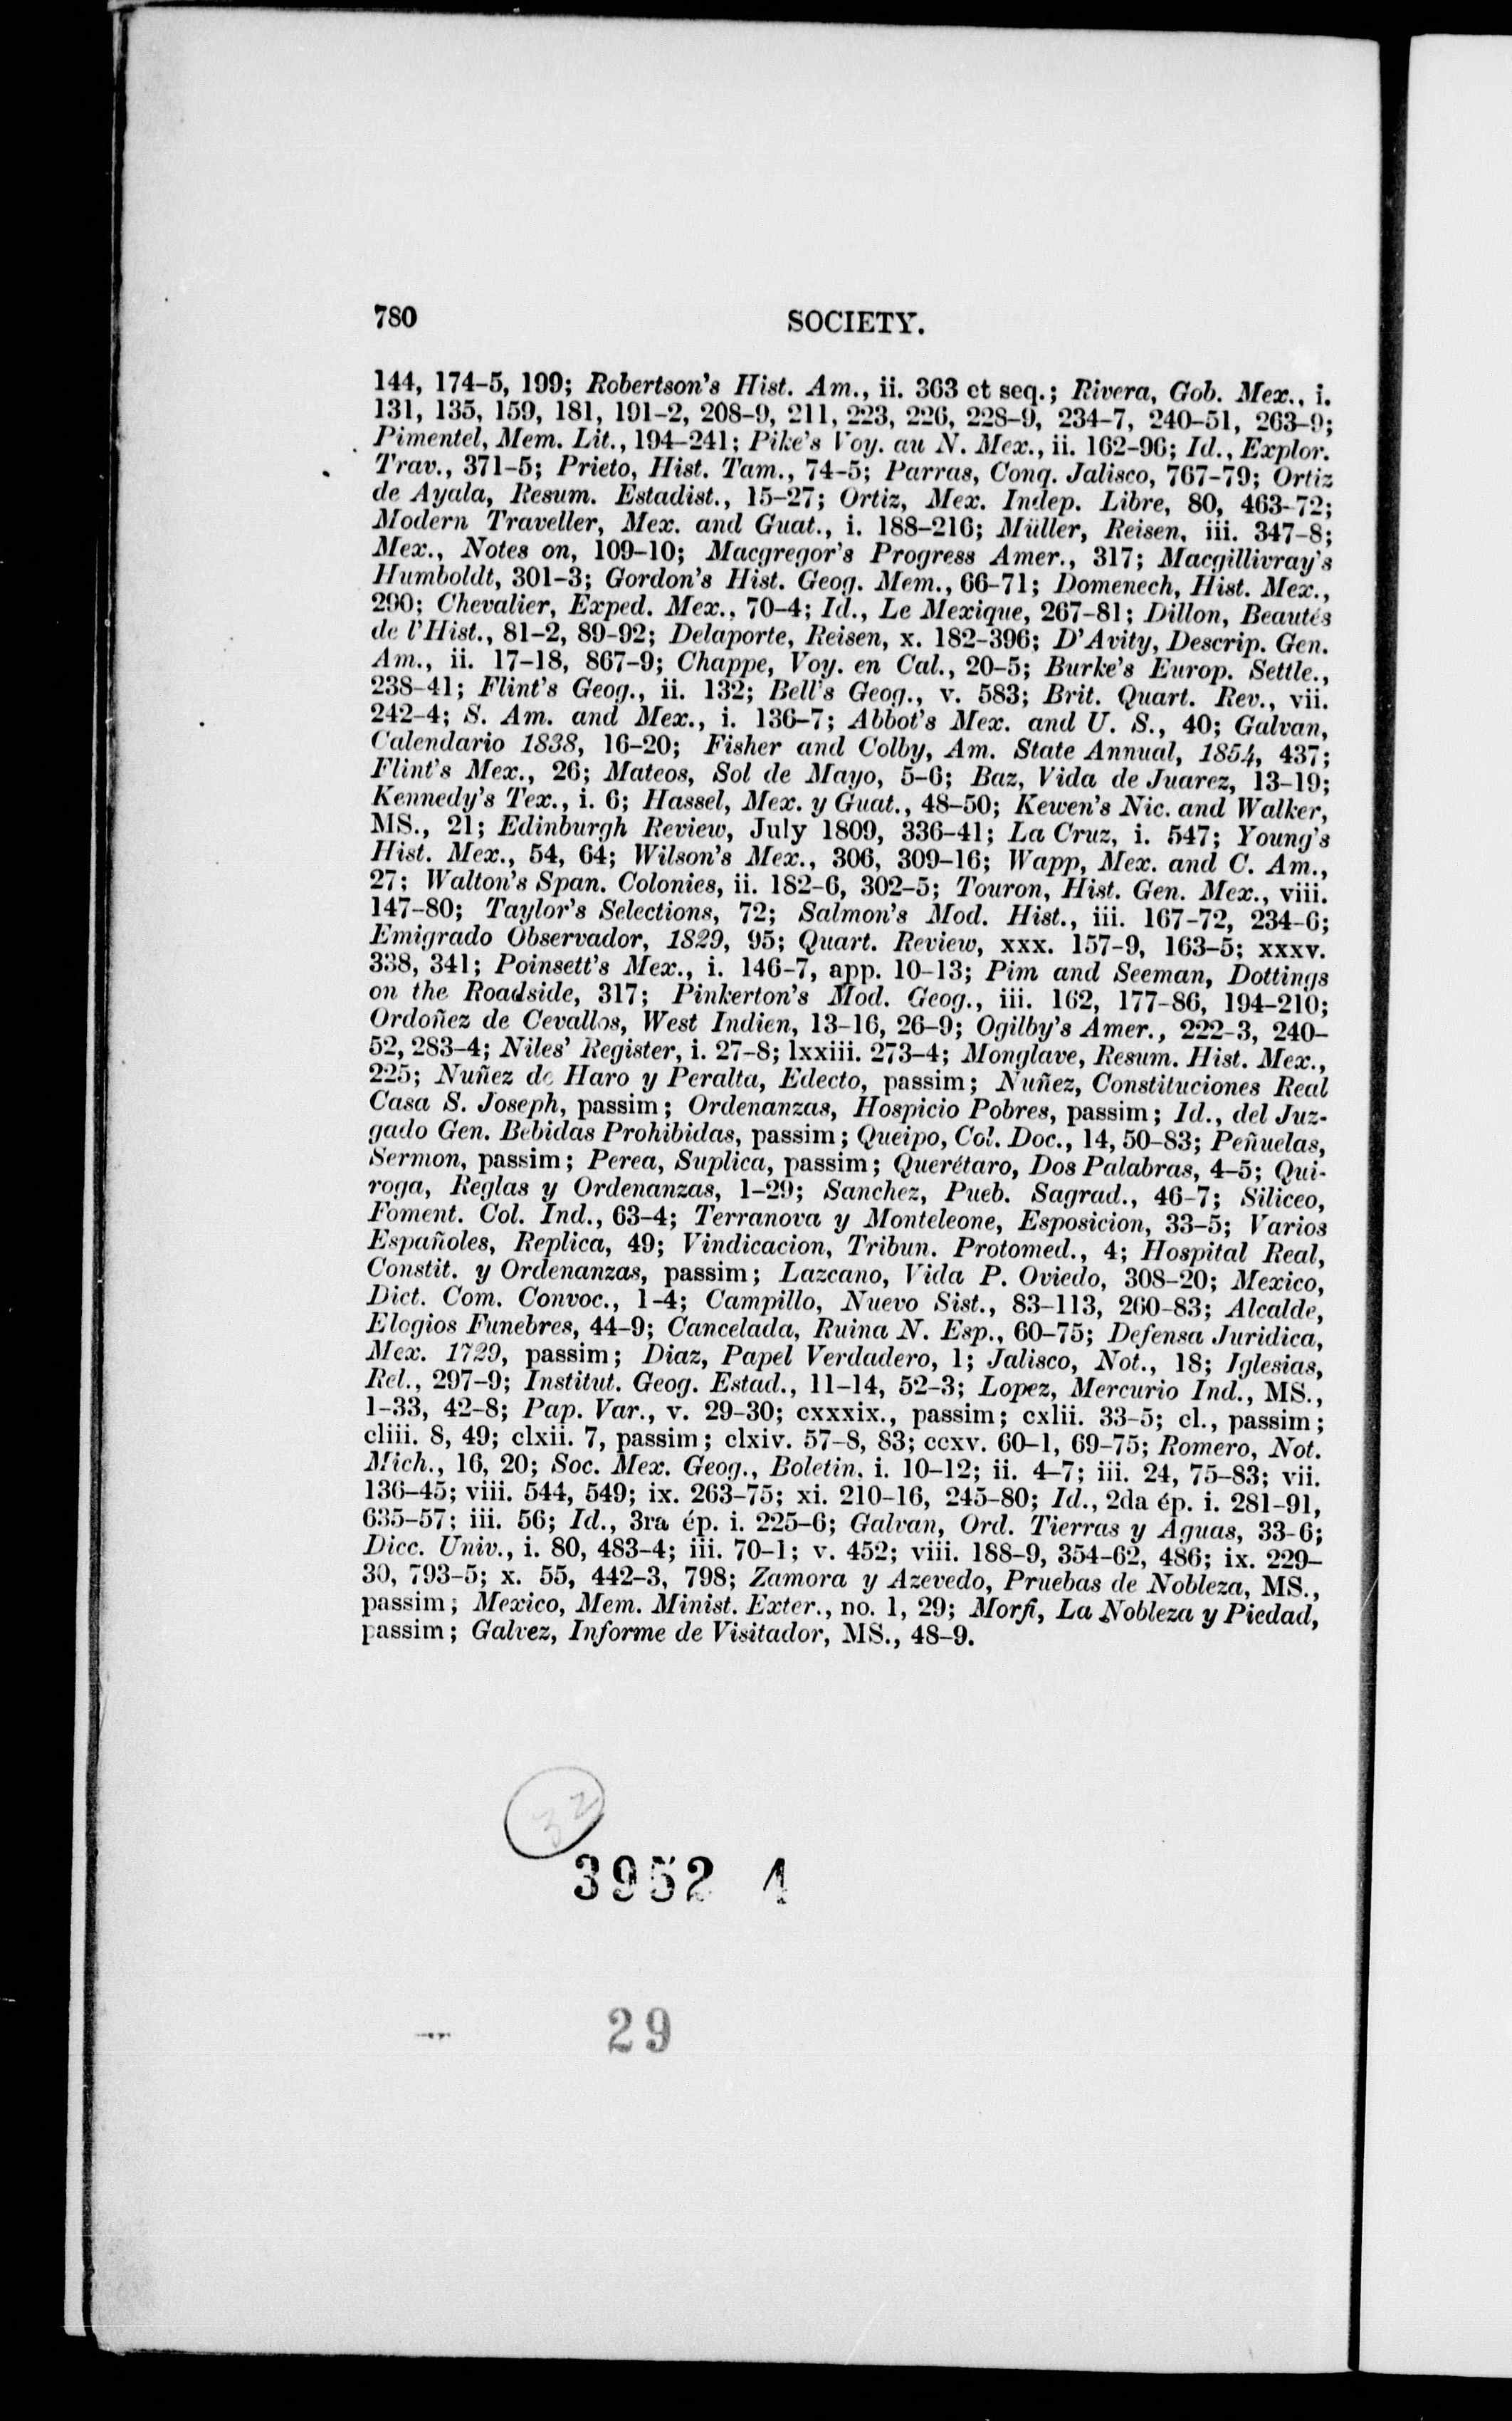 780 SOCIETY.
144, 174–5, 199; Robertson's Hist. Am., ii. 363 et seq.; Rivera, Gob. Mex., i.
131, 135, 159, 181, 191–2, 208–9, 211, 223, 226, 228–9, 234–7, 240–51, 263–9;
Pimentel, Mem. Lit., 194–241; Pike's Voy. au N. Mex., ii. 162–96; Id., Explor.
Trav., 371–5; Prieto, Hist. Tam., 74–5; Parras, Conq. Jalisco, 767–79; Ortiz
de Ayala, Resum. Estadist., 15–27; Ortiz, Mex. Indep. Libre, 80, 463–72;
Modern Traveller, Mex. and Guat., i. 188–216; Müller, Reisen, iii. 347–8;
Mex., Notes on, 109–10; Macgregor's Progress Amer., 317; Macgillivray's
Humboldt, 301–3; Gordon's Hist. Geog. Mem., 66–71; Domenech, Hist. Mex.,
290; Chevalier, Exped. Mex., 70–4; Id., Le Mexique, 267–81; Dillon, Beautés
de l'Hist., 81–2, 89–92; Delaporte, Reisen, x. 182–396; D'Avity, Descrip. Gen.
Am., ii. 17–18, 867–9; Chappe, Voy. en Cal., 20–5; Burke's Europ. Settle.,
238–41; Flint's Geog., ii. 132; Bell's Geog., v. 583; Brit. Quart. Rev., vii.
242–4; S. Am. and Mex., i. 136–7; Abbot's Mex. and U. S., 40; Galvan,
Calendario 1838, 16–20; Fisher and Colby, Am. State Annual, 1854, 437;
Flint's Mex., 26; Mateos, Sol de Mayo, 5–6; Baz, Vida de Juarez, 13–19;
Kennedy's Tex., i. 6; Hassel, Mex. y Guat., 48–50; Kewen's Nic. and Walker,
MS., 21; Edinburgh Review, July 1809, 336–41; La Cruz, i. 547; Young's
Hist. Mex., 54, 64; Wilson's Mex., 306, 309–16; Wapp, Mex. and C. Am.,
27; Walton's Span. Colonies, ii. 182–6, 302–5; Touron, Hist. Gen. Mex., viii.
147–80; Taylor's Selections, 72; Salmon's Mod. Hist., iii. 167–72, 234–6;
Emigrado Observador, 1829, 95; Quart. Review, xxx. 157–9, 163–5; xxxv.
338, 341; Poinsett's Mex., i. 146–7, app. 10–13; Pim and Seeman, Dottings
on the Roadside, 317; Pinkerton's Mod. Geog., iii. 162, 177–86, 194–210;
Ordoñez de Cevallos, West Indien, 13–16, 26–9; Ogilby's Amer., 222–3, 240–
52, 283–4; Niles' Register, i. 27–8; lxxiii. 273–4; Monglave, Resum. Hist. Mex.,
225; Nuñez de Haro y Peralta, Edecto, passim; Nuñez, Constituciones Real
Casa S. Joseph, passim; Ordenanzas, Hospicio Pobres, passim; Id., del Juz-
gado Gen. Bebidas Prohibidas, passim; Queipo, Col. Doc., 14, 50–83; Peñuelas,
Sermon, passim; Perea, Suplica, passim; Querétaro, Dos Palabras, 4–5; Qui-
roga, Reglas y Ordenanzas, 1–29; Sanchez, Pueb. Sagrad., 46–7; Siliceo,
Foment. Col. Ind., 63–4; Terranova y Monteleone, Esposicion, 33–5; Varios
Españoles, Replica, 49; Vindicacion, Tribun. Protomed., 4; Hospital Real,
Constit. y Ordenanzas, passim; Lazcano, Vida P. Oviedo, 308–20; Mexico,
Dict. Com. Convoc., 1–4; Campillo, Nuevo Sist., 83–113, 260–83; Alcalde,
Elogios Funebres, 44–9; Cancelada, Ruina N. Esp., 60–75; Defensa Juridica,
Mex. 1729, passim; Diaz, Papel Verdadero, 1; Jalisco, Not., 18; Iglesias,
Rel., 297–9; Institut. Geog. Estad., 11–14, 52–3; Lopez, Mercurio Ind., MS.,
1–33, 42–8; Pap. Var., v. 29–30; cxxxix., passim; cxlii. 33–5; cl., passim;
cliii. 8, 49; clxii. 7, passim; clxiv. 57–8, 83; ccxv. 60–1, 69–75; Romero, Not.
Mich., 16, 20; Soc. Mex. Geog., Boletin, i. 10–12; ii. 4–7; iii. 24, 75–83; vii.
136–45; viii. 544, 549; ix. 263–75; xi. 210–16, 245–80; Id., 2da ép. i. 281–91,
635–57; iii. 56; Id., 3ra ép. i. 225–6; Galvan, Ord. Tierras y Aguas, 33–6;
Dicc. Univ., i. 80, 483–4; iii. 70–1; v. 452; viii. 188–9, 354–62, 486; ix. 229–
30, 793–5; x. 55, 442–3, 798; Zamora y Azevedo, Pruebas de Nobleza, MS.,
passim; Mexico, Mem. Minist. Exter., no. 1, 29; Morfi, La Nobleza y Piedad,
passim; Galvez, Informe de Visitador, MS., 48–9.
32
3952 1
29